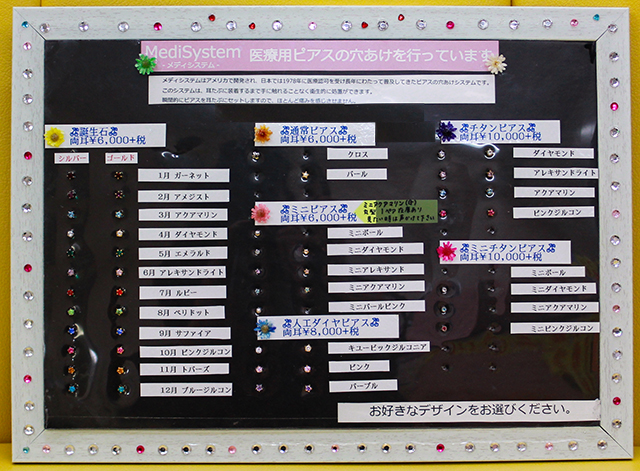 MediSystem 医療用ピアスの穴あけを行っています
- メディシステム -
メディシステムはアメリカで開発され、日本では1978年に医療認可を受け長年にわたって普及してきたピアスの穴あけシステムです。
このシステムは、耳たぶに装着するまで手に触れることなく衛生的に処置ができます。
瞬間的にピアスを耳たぶにセットしますので、ほとんど痛みを感じさせません。
誕生石
両耳¥6,000+税
シルバー ゴールド
1月 ガーネット
2月 アメジスト
3月 アクアマリン
4月 ダイヤモンド
5月 エメラルド
6月 アレキサンドライト
7月 ルビー
8月 ペリドット
9月 サファイア
10月 ピンクジルコン
11月 トパーズ
12月 ブルージルコン
通常ピアス
両耳¥6,000+税
クロス
パール
ミニピアス
両耳¥6,000+税
ミニアクアマリン
見たい時は声かけて下さい
ミニボール
ミニダイヤモンド
ミニアレキサンド
ミニアクアマリン
ミニパールピンク
人工ダイヤピアス
両耳¥8,000+税
キュービックジルコニア
ピンク
パープル
チタンピアス
両耳¥10,000+税
ダイヤモンド
アレキサンドライト
アクアマリン
ピンクジルコン
ミニチタンピアス
両耳¥10,000+税
ミニボール
ミニダイヤモンド
ミニアクアマリン
ミニピンクジルコン
お好きなデザインをお選びください。